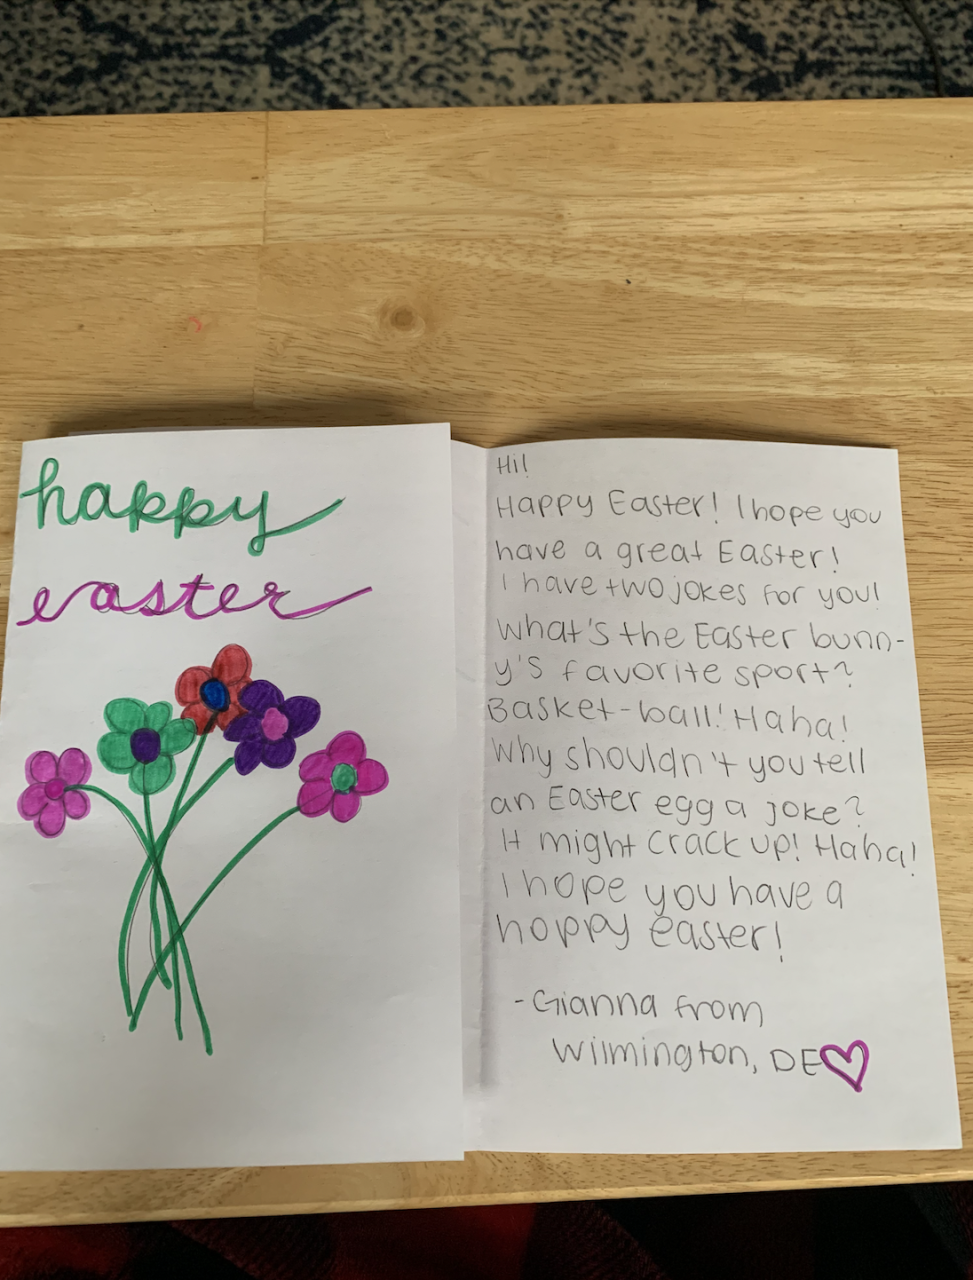 happy
easter
Hi!
Happy Easter! I hope you
have a great Easter!
I have two jokes for you!
What's the Easter bunn-
y's favorite sport?
Basket-ball! Haha!
Why shouldn't you tell
an Easter egg a joke?
It might crack up! Haha!
I hope you have a
hoppy easter!
-Gianna from
Wilmington, DE